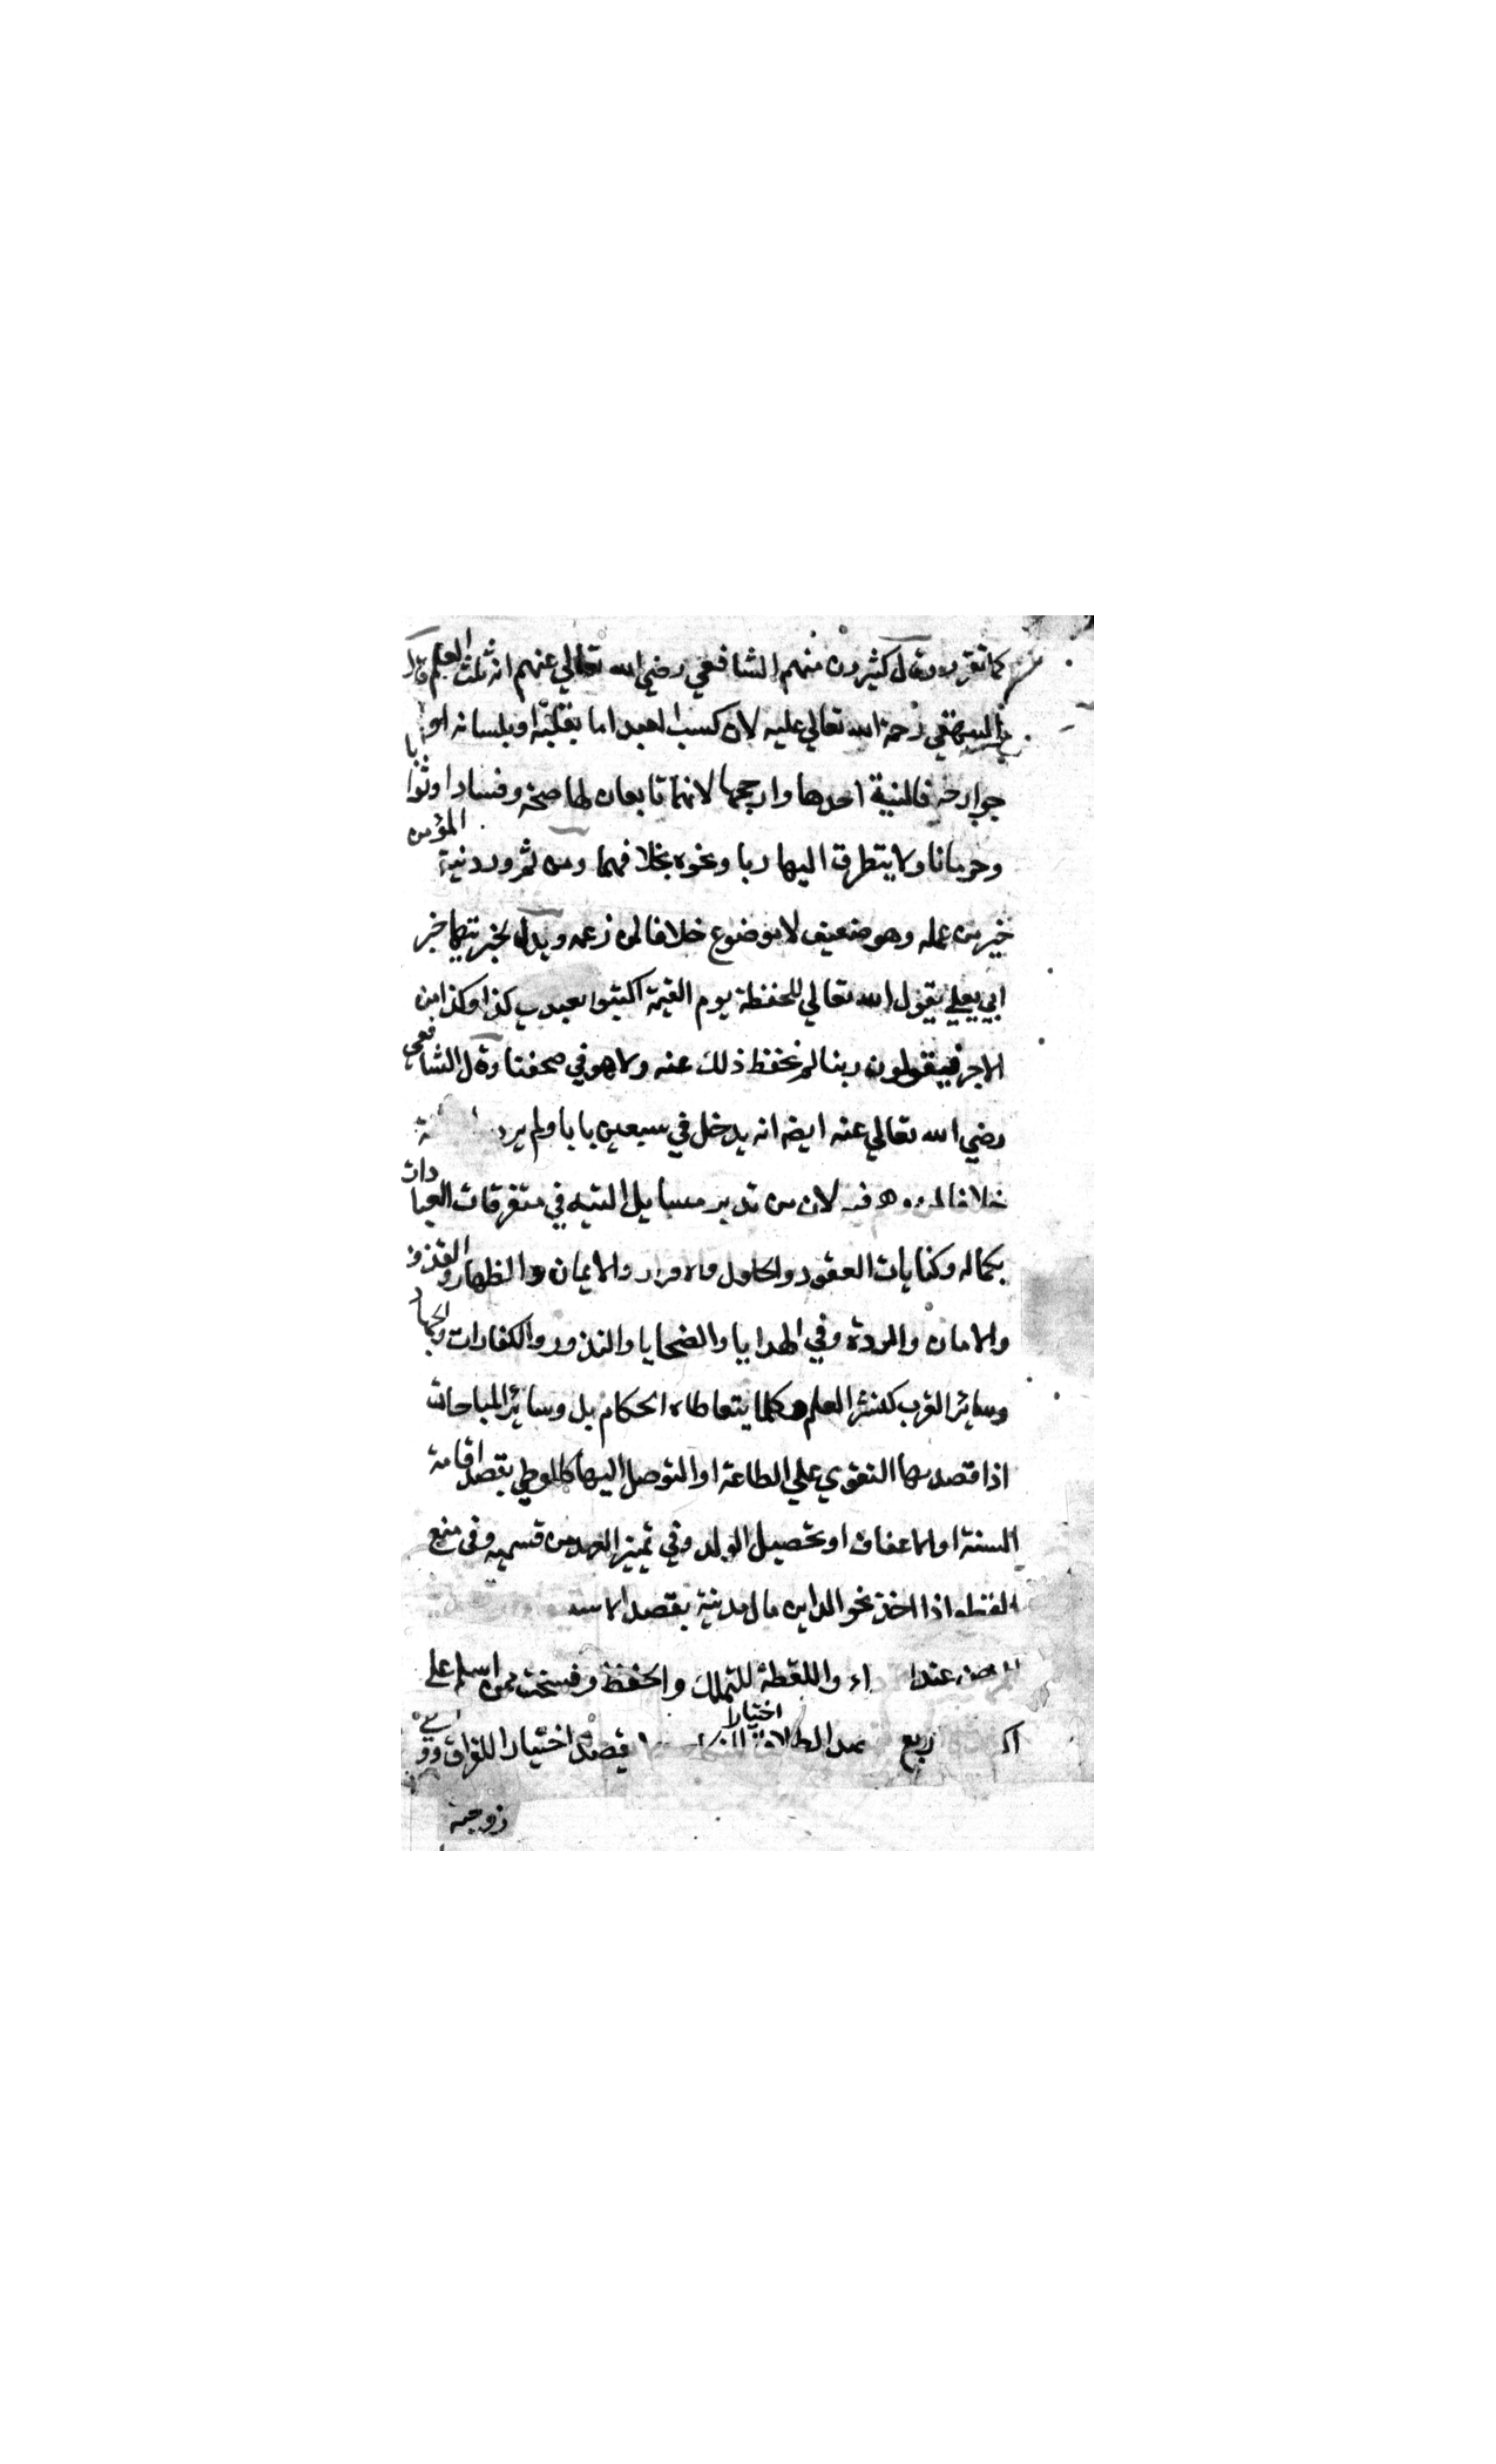 كما تقرر وقال كثيرون منهم الشافعي رضي الله تعالي عنهم انه ثلث العلم قال
البيهقي رحمة الله تعالي عليه لان كسب العبد اما بقلبه او بلسانه او
جوارحه فالنية احدها وارجحها لانهما تابعان لها صحة وفسادا وثوابا
وحرمانا ولا يتطرق اليها ريا ونحوه بخلافهما ومن ثم ورد نية المؤمن
خير من عمله وهو ضعيف لا موضوع خلافا لمن زعمه ويدل لخيريتها خبر
ابي يعلي يقول الله تعالي للحفظة يوم القيمة اكتبوا لعبدي كذا وكذا من
الاجر فيقولون ربنا لم نحفظ ذلك عنه ولا هو في صحفنا وقال الشافعي
رضي الله تعالي عنه ايضا انه يدخل في سبعين بابا ولم يرد
خلافا لمن وهم فيه لان من تدبر مسايل النية في متفرقات العبادات
بكماله وكنايات العقود والحلول والاقرار والايمان والظهار والقذف
والامان والردة وفي الهدايا والضحايا والنذور والكفارات والجهاد
وسائر القرب كنشر العلم وكلما يتعاطاه الحكام بل وسائر المباحات
اذا قصد بها التقوي علي الطاعة او التوصل اليها كالوطي بقصد اقامة
السنة او الاعفاف او تحصيل الولد وفي تميز العمد من قسميه وفي منع
القطع اذا اخذ نحو الداين مال مدينه بقصد الا
عند واللقطة للتملك والحفظ وفسخت ممن اسلم علي
اربع الطلاق اختيارا بقصد اختيارا للفراق ووطي
زوجته